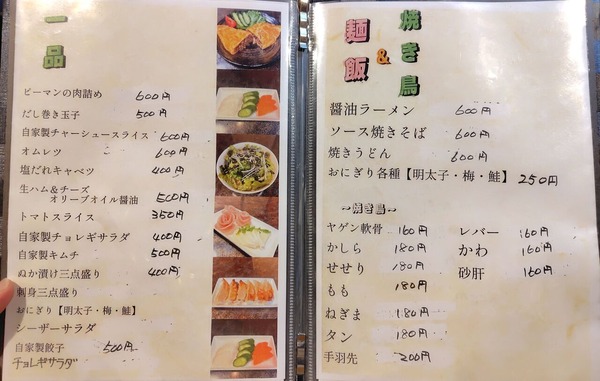 一品
ピーマンの肉詰め 600円
だし巻き玉子 500円
自家製チャーシュースライス 600円
オムレツ 600円
塩だれキャベツ 400円
生ハム&チーズ
オリーブオイル醤油 500円
トマトスライス 350円
自家製チョレギサラダ 400円
自家製キムチ 500円
ぬか漬け三点盛り 400円
刺身三点盛り
おにぎり【明太子・梅・鮭】
シーザーサラダ
自家製餃子 500円
チョレギサラダ
焼き鳥
&
麺飯
醤油ラーメン 600円
ソース焼きそば 600円
焼きうどん 600円
おにぎり各種【明太子・梅・鮭】250円
~焼き鳥~
ヤゲン軟骨 160円 レバー 160円
かしら 180円 かわ 160円
せせり 180円 砂肝 160円
もも 180円
ねぎま 180円
タン 180円
手羽先 200円